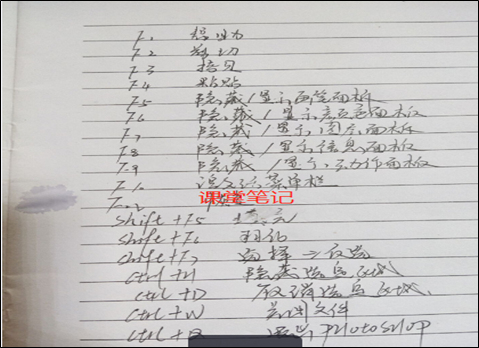 F1 帮助
F2 剪切
F3 拷贝
F4 粘贴
F5 隐藏/显示画笔面板
F6 隐藏/显示颜色面板
F7 隐藏/显示图层面板
F8 隐藏/显示信息面板
F9 隐藏/显示动作面板
菜单栏
课堂笔记
shift+F5 填充
shift+F6 羽化
shift+F7 选择→反选
ctrl+H 隐藏选定区域
ctrl+D 取消选定区域
ctrl+W 关闭文件
ctrl+Q 退出PHOTOSHOP